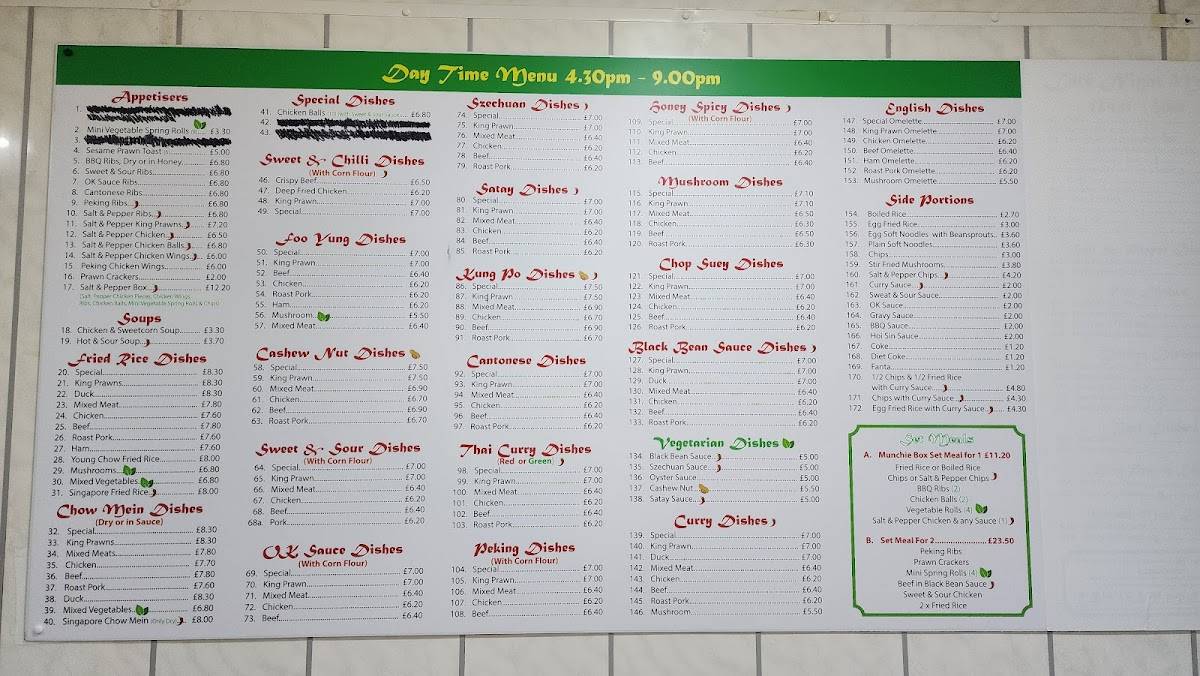 Day Time Menu 4.30pm - 9.00pm
Appetisers
1.
2. Mini Vegetable Spring Rolls £3.30
3.
4. Sesame Prawn Toast £5.00
5. BBQ Ribs, Dry or in Honey £6.80
6. Sweet & Sour Ribs £6.80
7. OK Sauce Ribs £6.80
8. Cantonese Ribs £6.80
9. Peking Ribs £6.80
10. Salt & Pepper Ribs £6.80
11. Salt & Pepper King Prawns £7.20
12. Salt & Pepper Chicken £6.50
13. Salt & Pepper Chicken Balls £6.80
14. Salt & Pepper Chicken Wings £6.00
15 Peking Chicken Wings £6.00
16. Prawn Crackers £2.00
17. Salt & Pepper Box £12.20
(Salt, Pepper Chicken Pieces, Chicken Wings
Ribs, Chicken Balls, Mini Vegetable Spring Rolls & Chips)
Soups
18. Chicken & Sweetcorn Soup £3.30
19. Hot & Sour Soup £3.70
Fried Rice Dishes
20. Special £8.30
21. King Prawns £8.30
22. Duck £8.30
23. Mixed Meat £7.80
24. Chicken £7.60
25. Beef £7.80
26. Roast Pork £7.60
27. Ham £7.60
28. Young Chow Fried Rice £8.00
29. Mushrooms £6.80
30. Mixed Vegetables £6.80
31. Singapore Fried Rice £8.00
Chow Mein Dishes
(Dry or in Sauce)
32. Special £8.30
33. King Prawns £8.30
34. Mixed Meats £7.80
35. Chicken £7.70
36. Beef £7.80
37. Roast Pork £7.60
38. Duck £8.30
39. Mixed Vegetables £6.80
40. Singapore Chow Mein (Only Dry) £8.00
Special Dishes
41. Chicken Balls £6.80
42.
43.
Sweet & Chilli Dishes
(With Corn Flour)
46. Crispy Beef £6.50
47. Deep Fried Chicken £6.20
48. King Prawn £7.00
49. Special £7.00
Foo Yung Dishes
50. Special £7.00
51. King Prawn £7.00
52. Beef £6.40
53. Chicken £6.20
54. Roast Pork £6.20
55. Ham £6.20
56. Mushroom £5.50
57. Mixed Meat £6.40
Cashew Nut Dishes
58. Special £7.50
59. King Prawn £7.50
60. Mixed Meat £6.90
61. Chicken £6.70
62. Beef £6.90
63. Roast Pork £6.70
Sweet & Sour Dishes
(With Corn Flour)
64. Special £7.00
65. King Prawn £7.00
66. Mixed Meat £6.40
67. Chicken £6.20
68. Beef £6.40
68a. Pork £6.20
OK Sauce Dishes
(With Corn Flour)
69. Special £7.00
70. King Prawn £7.00
71. Mixed Meat £6.40
72. Chicken £6.20
73. Beef £6.40
Szechuan Dishes
74. Special £7.00
75. King Prawn £7.00
76. Mixed Meat £6.40
77. Chicken £6.20
78. Beef £6.40
79. Roast Pork £6.20
Satay Dishes
80. Special £7.00
81. King Prawn £7.00
82. Mixed Meat £6.40
83. Chicken £6.20
84. Beef £6.40
85. Roast Pork £6.20
Kung Po Dishes
86. Special £7.50
87. King Prawn £7.50
88. Mixed Meat £6.90
89. Chicken £6.70
90. Beef £6.90
91. Roast Pork £6.70
Cantonese Dishes
92. Special £7.00
93. King Prawn £7.00
94. Mixed Meat £6.40
95. Chicken £6.20
96. Beef £6.40
97. Roast Pork £6.20
Thai Curry Dishes
(Red or Green)
98. Special £7.00
99. King Prawn £7.00
100. Mixed Meat £6.40
101. Chicken £6.20
102. Beef £6.40
103. Roast Pork £6.20
Peking Dishes
(With Corn Flour)
104. Special £7.00
105. King Prawn £7.00
106. Mixed Meat £6.40
107. Chicken £6.20
108. Beef £6.40
Honey Spicy Dishes
(With Corn Flour)
109. Special £7.00
110. King Prawn £7.00
111. Mixed Meat £6.40
112. Chicken £6.20
113. Beef £6.40
Mushroom Dishes
115. Special £7.10
116. King Prawn £7.10
117. Mixed Meat £6.50
118. Chicken £6.30
119. Beef £6.50
120. Roast Pork £6.30
Chop Suey Dishes
121. Special £7.00
122. King Prawn £7.00
123. Mixed Meat £6.40
124. Chicken £6.20
125. Beef £6.40
126 Roast Pork £6.20
Black Bean Sauce Dishes
127. Special £7.00
128. King Prawn £7.00
129. Duck £7.00
130. Mixed Meat £6.40
131. Chicken £6.20
132. Beef £6.40
133. Roast Pork £6.20
Vegetarian Dishes
134. Black Bean Sauce £5.00
135. Szechuan Sauce £5.00
136 Oyster Sauce £5.00
137 Cashew Nut £5.50
138 Satay Sauce £5.00
Curry Dishes
139. Special £7.00
140. King Prawn £7.00
141. Duck £7.00
142 Mixed Meat £6.40
143. Chicken £6.20
144. Beef £6.40
145. Roast Pork £6.20
146. Mushroom £5.50
English Dishes
147. Special Omelette £7.00
148. King Prawn Omelette £7.00
149. Chicken Omelette £6.20
150. Beef Omelette £6.40
151. Ham Omelette £6.20
152. Roast Pork Omelette £6.20
153. Mushroom Omelette £5.50
Side Portions
154. Boiled Rice £2.70
155. Egg Fried Rice £3.00
156. Egg Soft Noodles with Beansprouts £3.60
157. Plain Soft Noodles £3.60
158. Chips £3.00
159. Stir Fried Mushrooms £3.80
160. Salt & Pepper Chips £4.20
161 Curry Sauce £2.00
162 Sweat & Sour Sauce £2.00
163. OK Sauce £2.00
164. Gravy Sauce £2.00
165. BBQ Sauce £2.00
166. Hoi Sin Sauce £2.00
167. Coke £1.20
168. Diet Coke £1.20
169. Fanta £1.20
170. 1/2 Chips & 1/2 Fried Rice
with Curry Sauce £4.80
171 Chips with Curry Sauce £4.30
172 Egg Fried Rice with Curry Sauce £4.30
Set Meals
A. Munchie Box Set Meal for 1 £11.20
Fried Rice or Boiled Rice
Chips or Salt & Pepper Chips
BBQ Ribs (2)
Chicken Balls (2)
Vegetable Rolls (4)
Salt & Pepper Chicken & any Sauce (1)
B. Set Meal For 2 £23.50
Peking Ribs
Prawn Crackers
Mini Spring Rolls (4)
Beef in Black Bean Sauce
Sweet & Sour Chicken
2 x Fried Rice